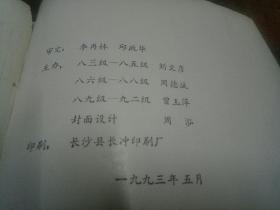 审定：李丹林 邱政华
主办：八三级—八五级 刘文彦
八六级—八八级 周德诚
八九级—九二级 曾玉萍
封面设计 周泓
印刷：长沙县长冲印刷厂
一九九三年五月